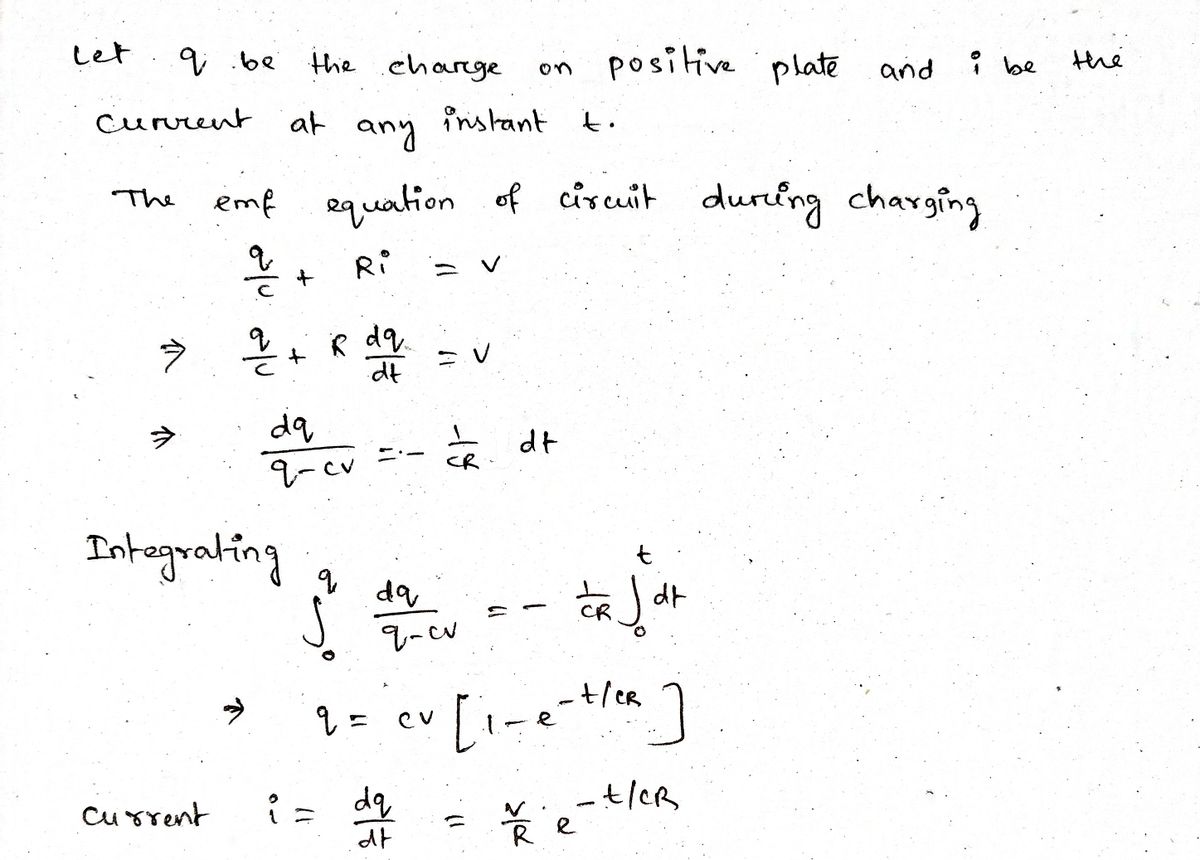 Let q be the charge on positive plate and i be the
current at any instant t.
The emf equation of circuit during charging
q/c + Ri = V
⇒ q/c + R dq/dt = V
⇒ dq/(q-cv) = - 1/CR dt
Integrating ∫₀^q dq/(q-cv) = - 1/CR ∫₀^t dt
⇒ q = cv [1-e^(-t/CR)]
Current i = dq/dt = V/R e^(-t/CR)